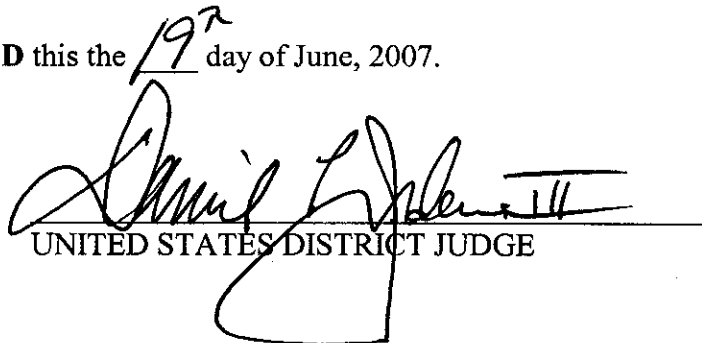 D this the 19th day of June, 2007.
Daniel Jordan III
UNITED STATES DISTRICT JUDGE